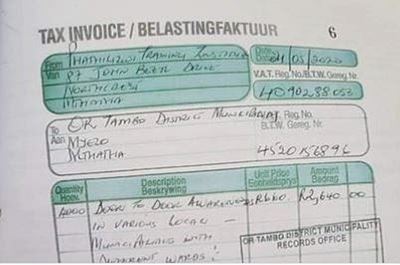 TAX INVOICE / BELASTINGFAKTUUR 6
From Van
Training Institute
87 John Beer Drive
Northcrest
Mthatha
Date
04/05/2020
V.A.T. Reg. No./B.T.W. Gereg. Nr.
4090288053
To Aan
OR Tambo District Municipality
Reg. No.
B.T.W. Gereg. Nr.
Myezo
Mthatha
4520156896
Quantity Hoev.
Description Beskrywing
Unit Price Eenheidsprys
Amount Bedrag
4000 Door to Door Awareness R660.00 R2,640 00
in various Local
Municipalities with
different wards!
OR TAMBO DISTRICT MUNICIPALITY
RECORDS OFFICE